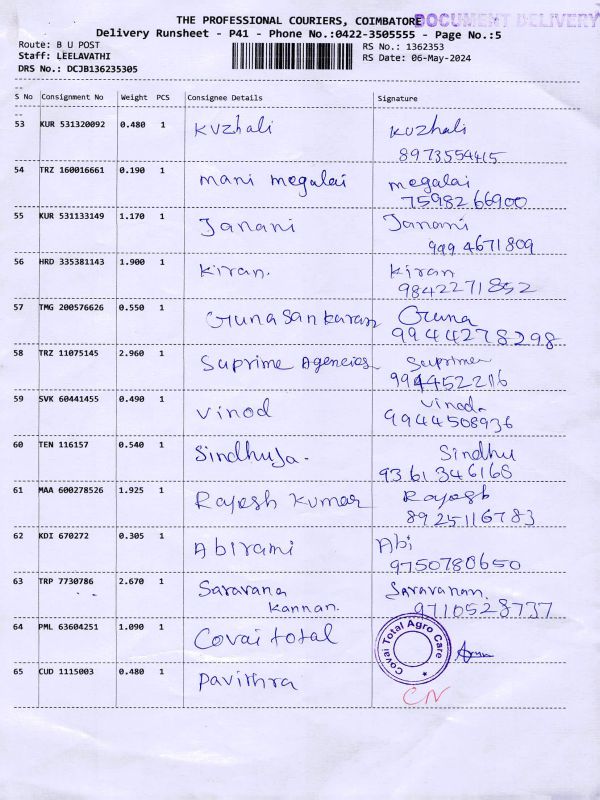 THE PROFESSIONAL COURIERS, COIMBATORE
DOCUMENT DELIVERY
Delivery Runsheet - P41 - Phone No.:0422-3505555 - Page No.:5
Route: B U POST
RS No.: 1362353
Staff: LEELAVATHI
RS Date: 06-May-2024
DRS No.: DCJB136235305
S No Consignment No Weight PCS Consignee Details Signature
53 KUR 531320092 0.480 1 Kuzhali Kuzhali
8973554415
54 TRZ 160016661 0.190 1 Mani megalai megalai
7598266900
55 KUR 531133149 1.170 1 Janani Janani
9994671809
56 HRD 335381143 1.900 1 Kiran. Kiran
9842271852
57 TMG 200576626 0.550 1 Gunasankaran Guna
9944278298
58 TRZ 11075145 2.960 1 Suprime Agencies Suprime
9944522116
59 SVK 60441455 0.490 1 Vinod Vinod
9944508936
60 TEN 116157 0.540 1 Sindhuja. Sindhu
9361346168
61 MAA 600278526 1.925 1 Rajesh Kumar Rajesh
8925116783
62 KDI 670272 0.305 1 Abirami Abi
9750780650
63 TRP 7730786 2.670 1 Saravana Saravanan.
Kannan. 9710528737
64 PML 63604251 1.090 1 Covai total Covai Total Agro Care
65 CUD 1115003 0.480 1 Pavithra
CN